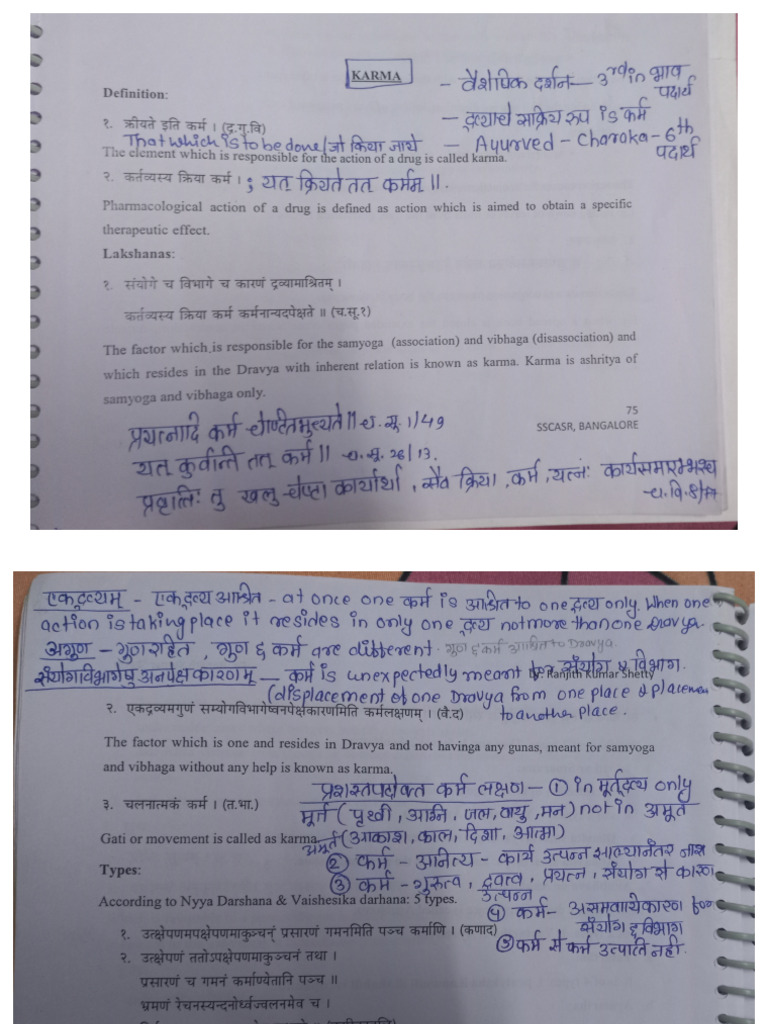 KARMA
- वैशेषिक दर्शन - 3rd in भाव पदार्थ
Definition:
- द्रव्याचे सक्रिय रूप is कर्म
१. क्रीयते इति कर्म । (द्र.गु.वि)
That which is to be done / जो किया जाये - Ayurved - Charaka - 6th पदार्थ
The element which is responsible for the action of a drug is called karma.
२. कर्तव्यस्य क्रिया कर्म । ; यत् क्रियते तत् कर्मम् ॥.
Pharmacological action of a drug is defined as action which is aimed to obtain a specific
therapeutic effect.
Lakshanas:
१. संयोगे च विभागे च कारणं द्रव्यामाश्रितम् ।
कर्तव्यस्य क्रिया कर्म कर्मनान्यदपेक्षते ॥ (च.सू.१)
The factor which is responsible for the samyoga (association) and vibhaga (disassociation) and
which resides in the Dravya with inherent relation is known as karma. Karma is ashritya of
samyoga and vibhaga only.
75
SSCASR, BANGALORE
प्रयत्नादि कर्म चेष्टितमुच्यते ॥ च. सू. 1/49
यत् कुर्वन्ति तत् कर्म ॥ च. सू. 26/13.
प्रवृत्तिः तु खलु चेष्टा कार्यार्था, सैव क्रिया, कर्म, यत्नः कार्यसमारम्भश्च
- च. वि. 8/
एकद्रव्यम् - एकद्रव्य आश्रित - at once one कर्म is आश्रित to one द्रव्य only. When one
action is taking place it resides in only one द्रव्य not more than one Dravya.
अगुण - गुण रहित, गुण & कर्म are different. गुण & कर्म आश्रित to Dravya.
संयोगविभागेषु अनपेक्षकारणम् - कर्म is unexpectedly meant for संयोग & विभाग.
By: Ranjith Kumar Shetty
(displacement of one Dravya from one place & placement
to another place.
२. एकद्रव्यमगुणं सम्योगविभागेष्वनपेक्षकारणमिति कर्मलक्षणम् । (वै.द)
The factor which is one and resides in Dravya and not havinga any gunas, meant for samyoga
and vibhaga without any help is known as karma.
प्रशस्तपादोक्त कर्म लक्षण - ① in मूर्तद्रव्य only
३. चलनात्मकं कर्म । (त.भा.)
मूर्त (पृथ्वी, अग्नि, जल, वायु, मन) not in अमूर्त
Gati or movement is called as karma.
अमूर्त (आकाश, काल, दिशा, आत्मा)
② कर्म - अनित्य - कार्य उत्पन्न झाल्यानंतर नाश
Types:
③ कर्म - गुरुत्व, द्रवत्व, प्रयत्न, संयोग से कारण उत्पन्न
According to Nyya Darshana & Vaishesika darhana: 5 types.
④ कर्म - असमवायिकारण for संयोग & विभाग
१. उत्क्षेपणमपक्षेपणमाकुञ्चनं प्रसारणं गमनमिति पञ्च कर्माणि । (कणाद)
⑤ कर्म से कर्म उत्पत्ति नही.
२. उत्क्षेपणं ततोऽपक्षेपणमाकुञ्चनं तथा ।
प्रसारणं च गमनं कर्माण्येतानि पञ्च ॥
भ्रमणं रेचनस्यन्दनोर्ध्वज्वलनमेव च ।